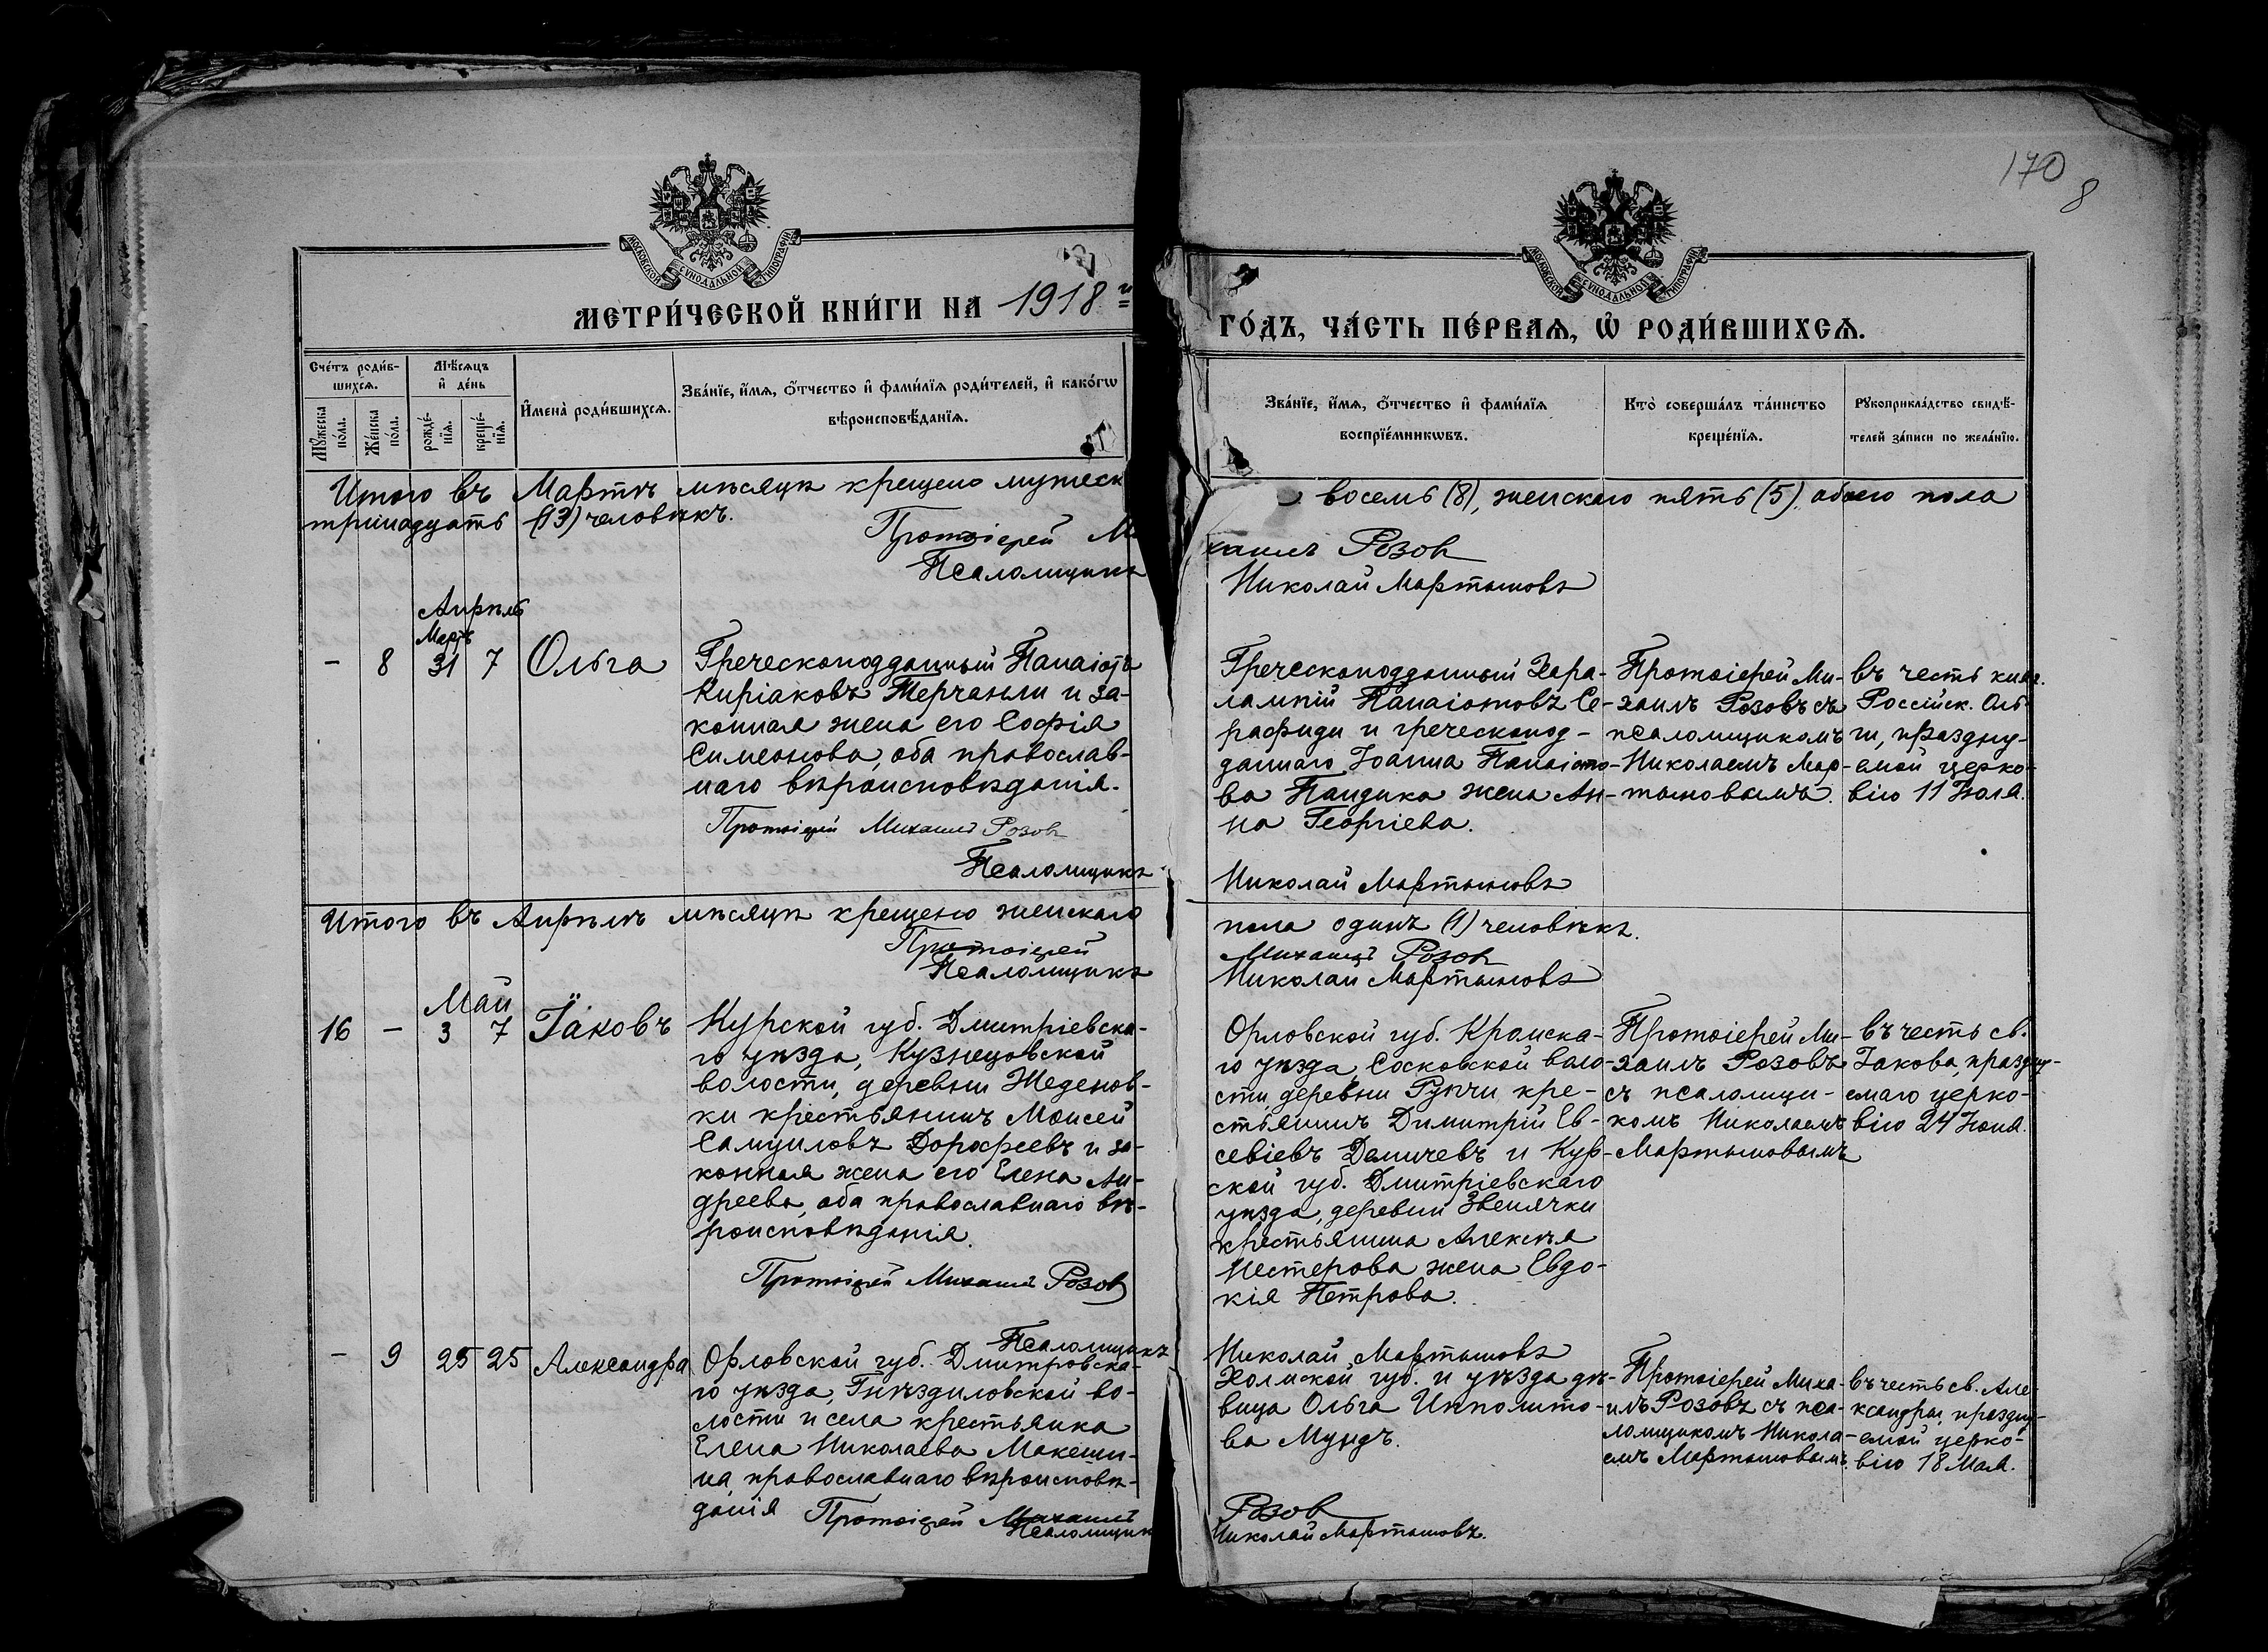 170
8
МОСКОВСКОЙ СУНОДАЛЬНОЙ ТИПОГРАФІИ
МОСКОВСКОЙ СУНОДАЛЬНОЙ ТИПОГРАФІИ
МЕТРИ́ЧЕСКОЙ КНИ́ГИ НА 1918 й
ГО́ДЪ, ЧА́СТЬ ПЕ́РВАЯ, Ѡ҆ РОДИ́ВШИХСЯ.
Сче́тъ роди́в-
шихсѧ.
Мѣ́сѧцъ
и҆ де́нь
Мꙋ́жеска
по́ла.
Же́нска
по́ла.
рожде́-
нїѧ.
креще́-
нїѧ.
И҆мена̀ роди́вшихсѧ.
Зва́нїе, и҆́мѧ, ѻ҆́тчество и҆ фами́лїѧ роди́телей, и҆ како́гѡ
вѣроисповѣ́данїѧ.
Зва́нїе, и҆́мѧ, ѻ҆́тчество и҆ фами́лїѧ
воспрїе́мникѡвъ.
Кто̀ соверша́лъ та́инство
креще́нїѧ.
Рꙋкоприкла́дство свидѣ́-
телей за́писи по жела́нїю.
Итого въ Мартѣ мѣсяцѣ крещено мужеск
восемь (8), женскаго пять (5), обоего пола
тринадцать (13) человѣкъ.
Протоіерей Ми
хаилъ Розов
Псаломщикъ
Николай Мартыновъ
Апрѣль
Мартъ
- 8 31 7 Ольга
Греческоподданный Панаіотъ
Киріаковъ Терчанли и за-
конная жена его Софія
Симеонова, оба православ-
наго вѣроисповѣданія.
Протоіерей Михаилъ Розов
Псаломщикъ
Греческоподданный Хара-
лампій Панаіотовъ Се-
рафиди и греческопод-
даннаго Іоанна Панаіото-
ва Пандика жена Ан-
на Георгіева.
Николай Мартыновъ
Протоіерей Ми-
хаилъ Розовъ съ
псаломщикомъ
Николаемъ Мар-
тыновымъ.
въ честь княг.
Россійск. Оль
ги, праздну-
емой церко-
вію 11 Іюля.
Итого въ Апрѣлѣ мѣсяцѣ крещено женскаго
пола одинъ (1) человѣкъ.
Протоіерей
Михаилъ Розов
Псаломщикъ
Николай Мартыновъ
Май
16 - 3 7 Іаковъ
Курской губ. Дмитріевска-
го уѣзда, Кузнецовской
волости, деревни Жеденов-
ки крестьянинъ Моисей
Самуиловъ Дорофеевъ и за-
конная жена его Елена Ан-
дреева, оба православнаго вѣ-
роисповѣданія.
Протоіерей Михаилъ Розов
Псаломщикъ
Орловской губ. Кромска-
го уѣзда, Сосковской воло-
сти деревни Ручи кре-
стьянинъ Димитрій Ев-
севіевъ Демичевъ и Кур-
ской губ. Дмитріевскаго
уѣзда, деревни Звенячки
крестьянина Алексѣя
Нестерова жена Евдо-
кія Петрова.
Николай Мартыновъ
Протоіерей Ми-
хаилъ Розовъ
съ псаломщи-
комъ Николаемъ
Мартыновымъ
въ честь св.
Іакова, праздну-
емаго церко-
вію 24 Іюня.
- 9 25 25 Александра
Орловской губ. Дмитровска-
го уѣзда, Гнѣздиловской во-
лости и села крестьянка
Елена Николаева Макеши-
на, православнаго вѣроисповѣ-
данія Протоіерей Михаилъ
Псаломщик
Холмской губ. и уѣзда дѣ-
вица Ольга Ипполито-
ва Мундъ.
Розов
Николай Мартыновъ.
Протоіерей Миха-
илъ Розовъ съ пса-
ломщикомъ Никола-
емъ Мартыновымъ.
въ честь св. Але-
ксандры, праздну-
емой церко-
вію 18 Мая.